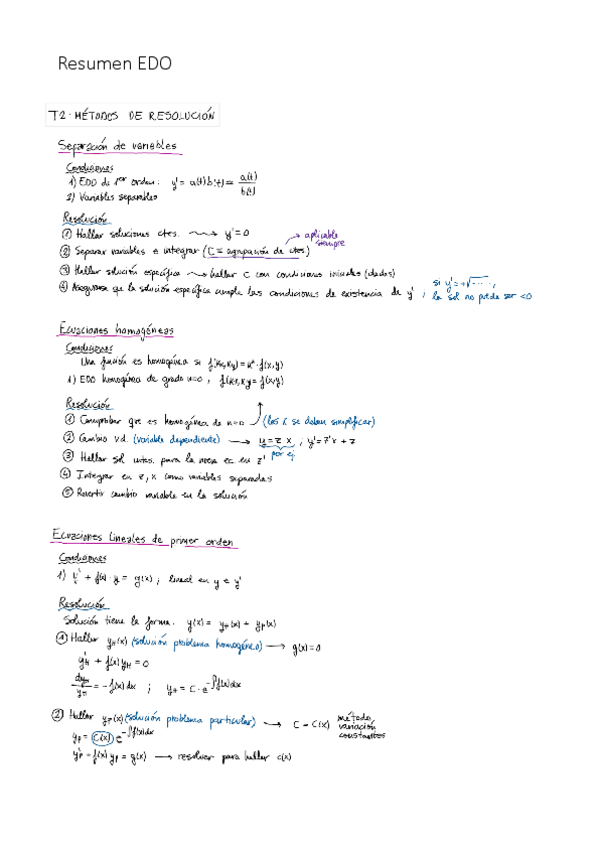 Resumen EDO
T2. MÉTODOS DE RESOLUCIÓN
Separación de variables
Condiciones
1) EDO de 1er orden: y' = a(t)b(t) = a(t)/b(t)
2) Variables separables
Resolución
① Hallar soluciones ctes. → y' = 0
② Separar variables e integrar (C = agrupación de ctes) → aplicable siempre
③ Hallar solución específica → hallar C con condiciones iniciales (dadas)
④ Asegurarse que la solución específica cumple las condiciones de existencia de y' ; si y' = +√..., la sol no puede ser <0
Ecuaciones homogéneas
Condiciones
Una función es homogénea si f(kx, ky) = kⁿ · f(x,y)
1) EDO homogénea de grado n=0, f(kx, ky = f(x,y)
Resolución
① Comprobar que es homogénea de n=0 (las k se deben simplificar)
② Cambio v.d. (variable dependiente) → y = z x ; y' = z'x + z
por ej
③ Hallar sol ctes. para la nueva ec en z'
④ Integrar en z, x como variables separadas
⑤ Revertir cambio variable en la solución
Ecuaciones lineales de primer orden
Condiciones
1) y' + f(x) · y = g(x) ; lineal en y e y'
Resolución
Solución tiene la forma: y(x) = yH(x) + yP(x)
① Hallar yH(x) (solución problema homogéneo) → g(x) = 0
y'H + f(x) yH = 0
dyH/yH = -f(x) dx ; yH = C · e^-∫f(x)dx
② Hallar yP(x) (solución problema particular) → C = C(x) método variación constantes
yP = C(x) e^-∫f(x)dx
y'P + f(x) yP = g(x) → resolver para hallar c(x)